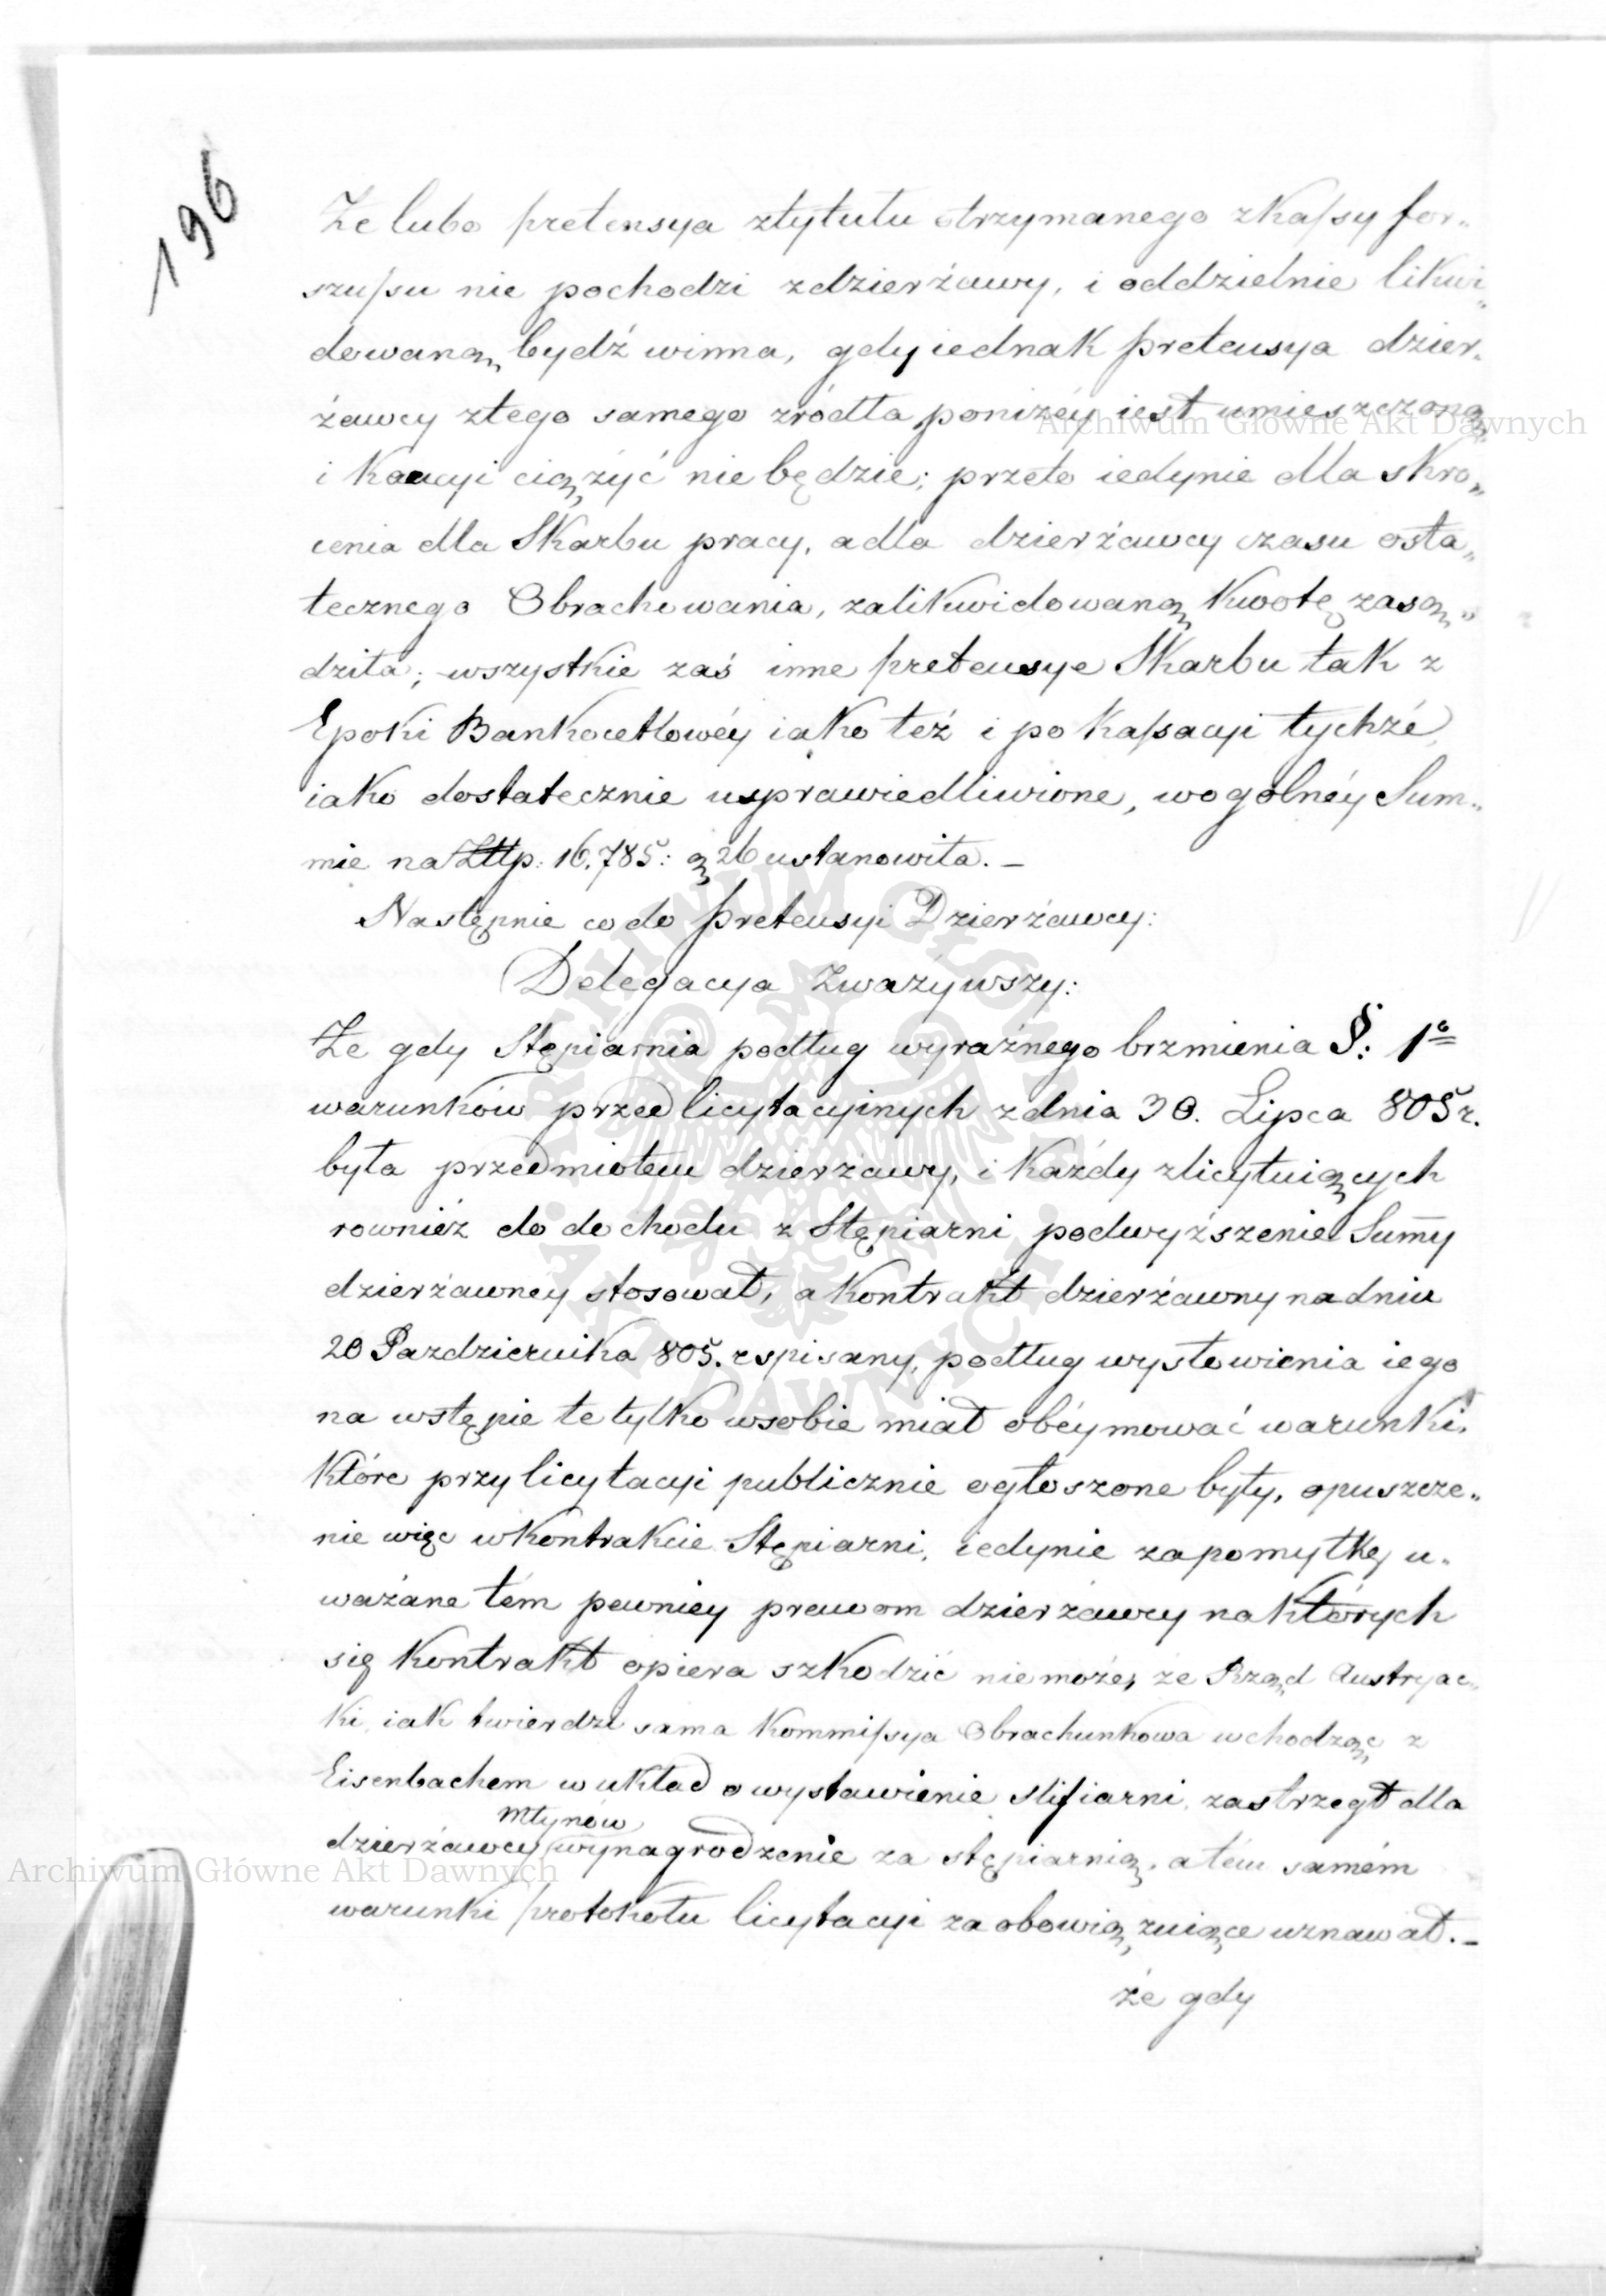 196
Że lubo pretensya ztytułu otrzymanego zkaſsy for„
szuſsu nie pochodzi zdzierżawy, i oddzielnie likwi„
dowaną bydź winna, gdy iednak pretensya dzier„
żawcy ztego samego zródła poniżéy iest umieszczoną
i Kaucyi ciążyć nie będzie; przeto iedynie dla skro„
cenia dla Skarbu pracy, a dla dzierżawcy czasu osta„
tecznego Obrachowania, zalikwidowaną Kwotę zasą„
dziła; wszystkie zaś inne pretensye Skarbu tak z
Epoki Bankocetlowéy iako też i po Kaſsacyi tychże
iako dostatecznie usprawiedliwione, wogolnéy Sum„
mie na Złłp. 16,785: g 26 ustanowiła. –
Następnie co do pretensyi Dzierżawcy:
Delegacya Zważywszy:
Że gdy Stępiarnia podług wyraźnego brzmienia §: 1º
warunków przed licytacyinych zdnia 30. Lipca 805 r.
była przedmiotem dzierżawy, i Każdy zlicytuiących
rownież do dochodu z Stępiarni podwyższenie Sum̅y
dzierżawnéy stosował, a Kontrakt dzierżawny na dniu
20 Pazdziernika 805. r spisany, podług wysłowienia iego
na wstępie te tylko wsobie miał obéymować warunki,
Które przy licytacyi publicznie ogłoszone były, opuszcze„
nie więc w Kontrakcie Stępiarni, iedynie za pomyłkę u„
ważane tém pewniey prawom dzierżawcy na których
się Kontrakt opiera szkodzić nie może, że Rząd Austryac„
ki, iak twierdzi sama Kommiſsya Obrachunkowa wchodząc z
Eisenbachem w układ o wystawienie slifiarni, zastrzegł dla
dzierżawcy młynów wynagrodzenie za stępiarnią, a tém samém
warunki protokołu licytacyi za obowiązuiące uznawał. –
że gdy
Archiwum Główne Akt Dawnych
Archiwum Główne Akt Dawnych
ARCHIWUM GŁÓWNE AKT DAWNYCH